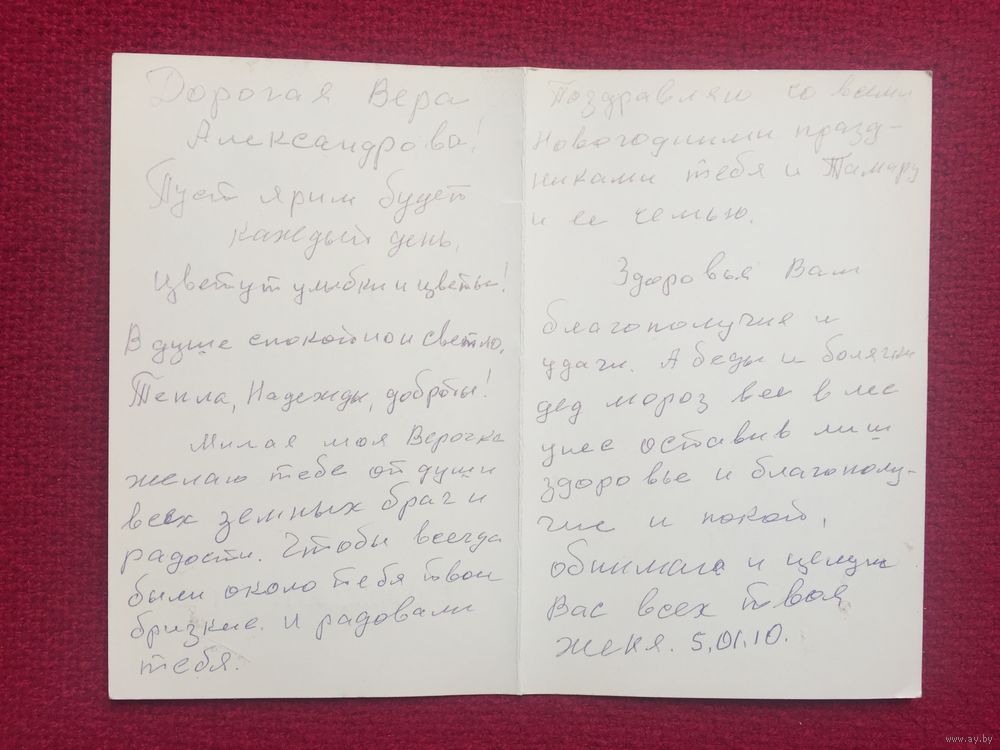 Дорогая Вера
Александрова!
Пуст ярким будет
каждый день,
Цветут улыбки и цветы!
В душе спокойно и светло,
Тепла, Надежды, доброты!
Милая моя Верочка
желаю тебе от души
всех земных браг и
радости. Чтобы всегда
были около тебя твои
бризкие и радовали
тебя.
Поздравляю со всеми
Новогодними празд-
никами тебя и Тамару
и ее семью.
Здоровья Вам
благополучия и
удачи. А беды и болячки
дед мороз все в лес
унес оставив лиш
здоровье и благополу-
чие и покой,
обнимаю и целую
Вас всех твоя
Женя. 5,01,10.
www.ay.by